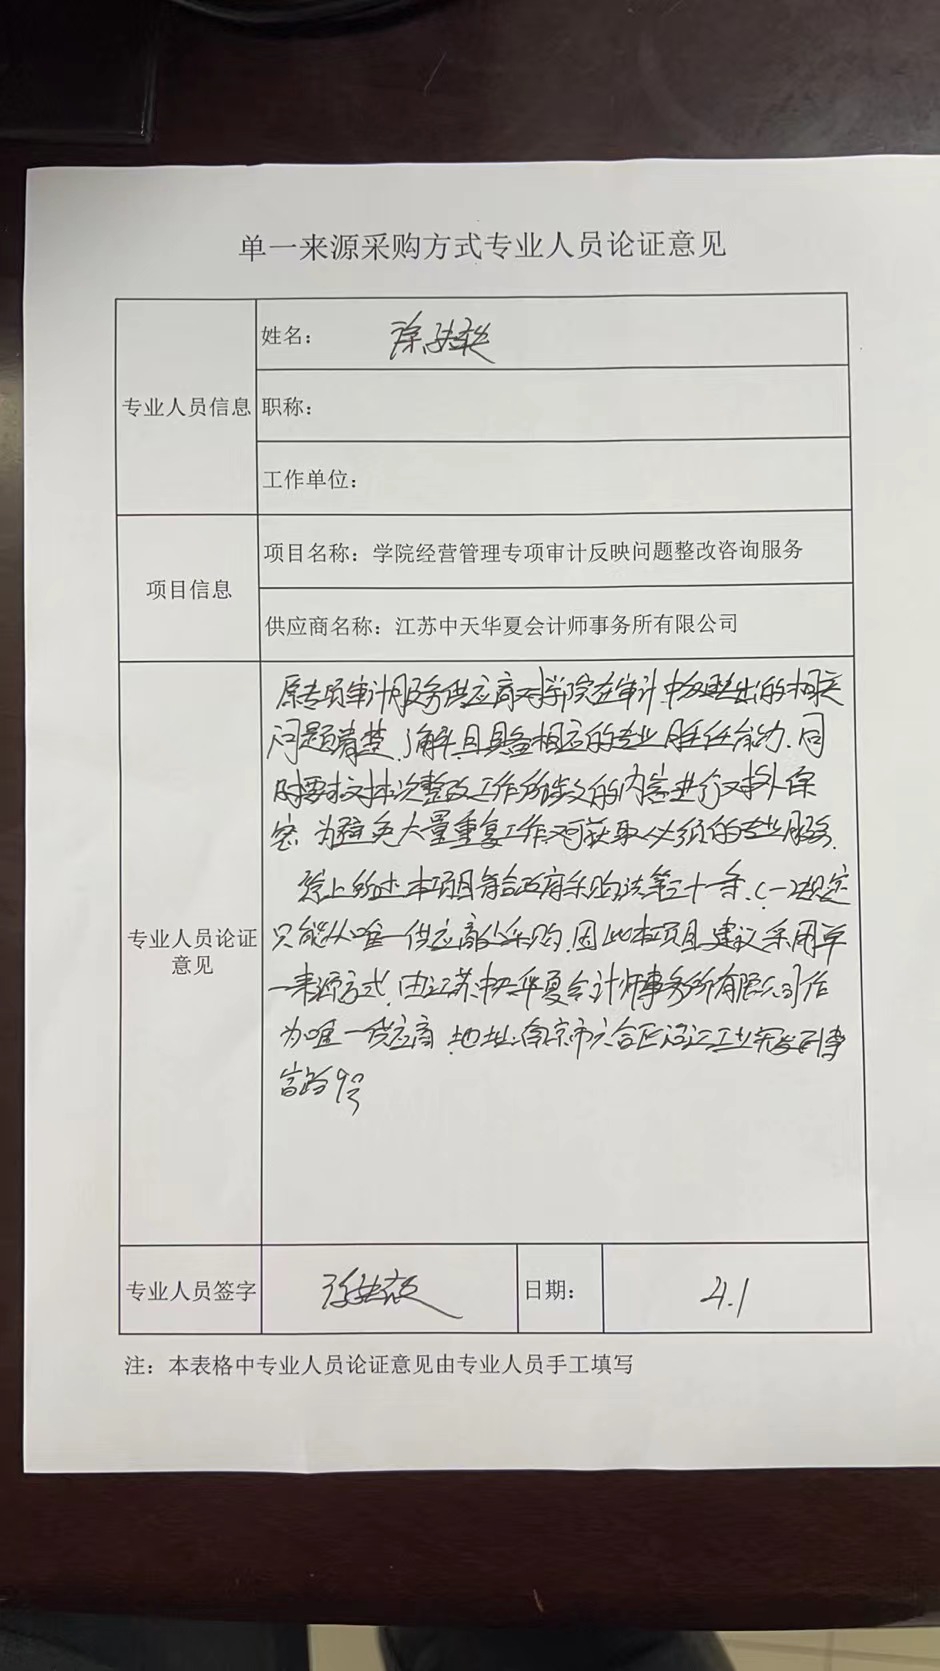 单一来源采购方式专业人员论证意见
专业人员信息
姓名：徐
职称：
工作单位：
项目信息
项目名称：学院经营管理专项审计反映问题整改咨询服务
供应商名称：江苏中天华夏会计师事务所有限公司
专业人员论证
意见
原专项审计服务供应商对学院在审计中出的相关
问题清楚、了解,且具备相应的专业胜任能力.同
时要求对本次整改工作所涉及的内容进行对外保
密.为避免大量重复工作,可获取必须的专业服务.
综上所述,本项目符合政府采购法第三十一条、(一)规定
只能从唯一供应商处采购,因此本项目建议采用单
一来源方式,由江苏中天华夏会计师事务所有限公司作
为唯一供应商.地址:南京市六合区沿江工业开发区
富路9号
专业人员签字
日期：
4.1
注：本表格中专业人员论证意见由专业人员手工填写